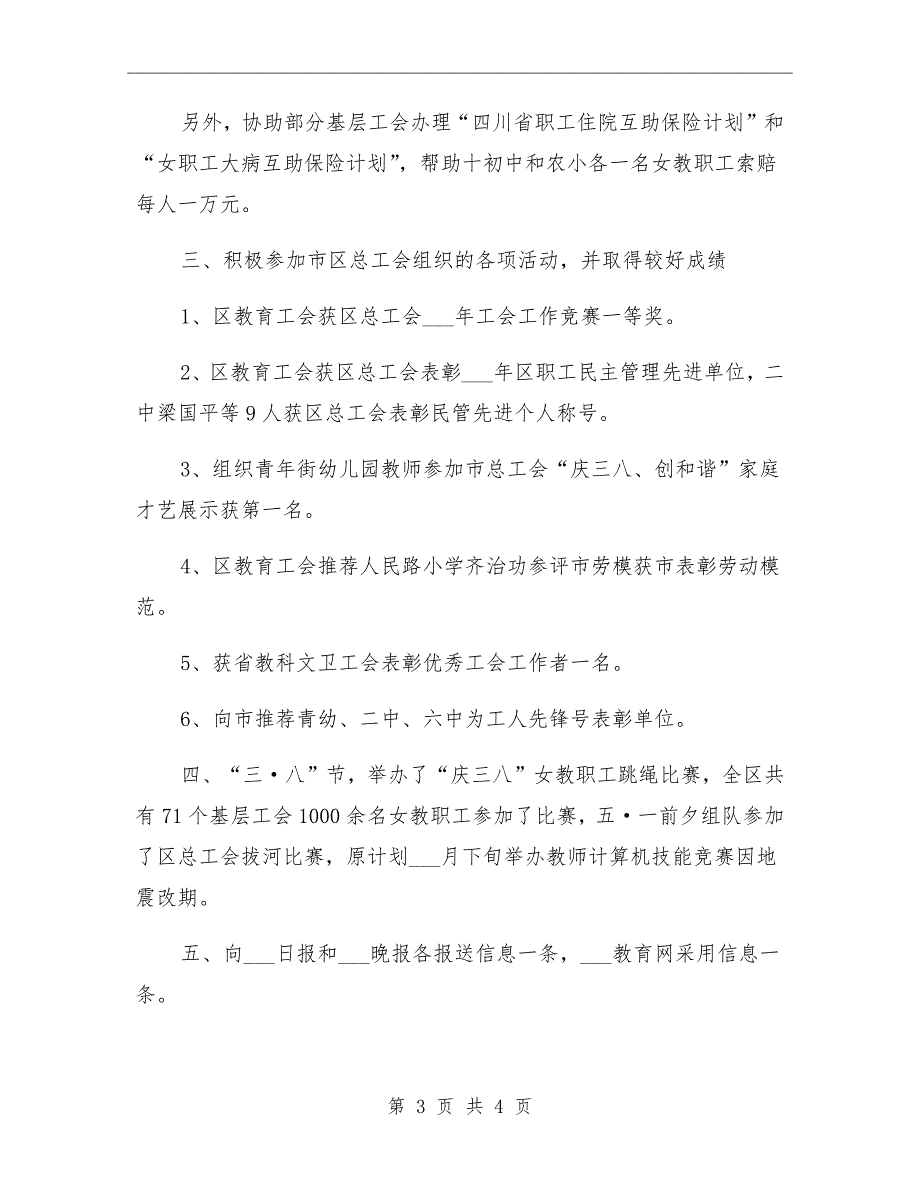 另外，协助部分基层工会办理“四川省职工住院互助保险计划”和
“女职工大病互助保险计划”，帮助十初中和农小各一名女教职工索赔
每人一万元。
三、积极参加市区总工会组织的各项活动，并取得较好成绩
1、区教育工会获区总工会___年工会工作竞赛一等奖。
2、区教育工会获区总工会表彰___年区职工民主管理先进单位，二
中梁国平等 9 人获区总工会表彰民管先进个人称号。
3、组织青年街幼儿园教师参加市总工会“庆三八、创和谐”家庭
才艺展示获第一名。
4、区教育工会推荐人民路小学齐治功参评市劳模获市表彰劳动模
范。
5、获省教科文卫工会表彰优秀工会工作者一名。
6、向市推荐青幼、二中、六中为工人先锋号表彰单位。
四、“三·八”节，举办了“庆三八”女教职工跳绳比赛，全区共
有 71 个基层工会 1000 余名女教职工参加了比赛，五·一前夕组队参加
了区总工会拔河比赛，原计划___月下旬举办教师计算机技能竞赛因地
震改期。
五、向___日报和___晚报各报送信息一条，___教育网采用信息一
条。
第 3 页 共 4 页